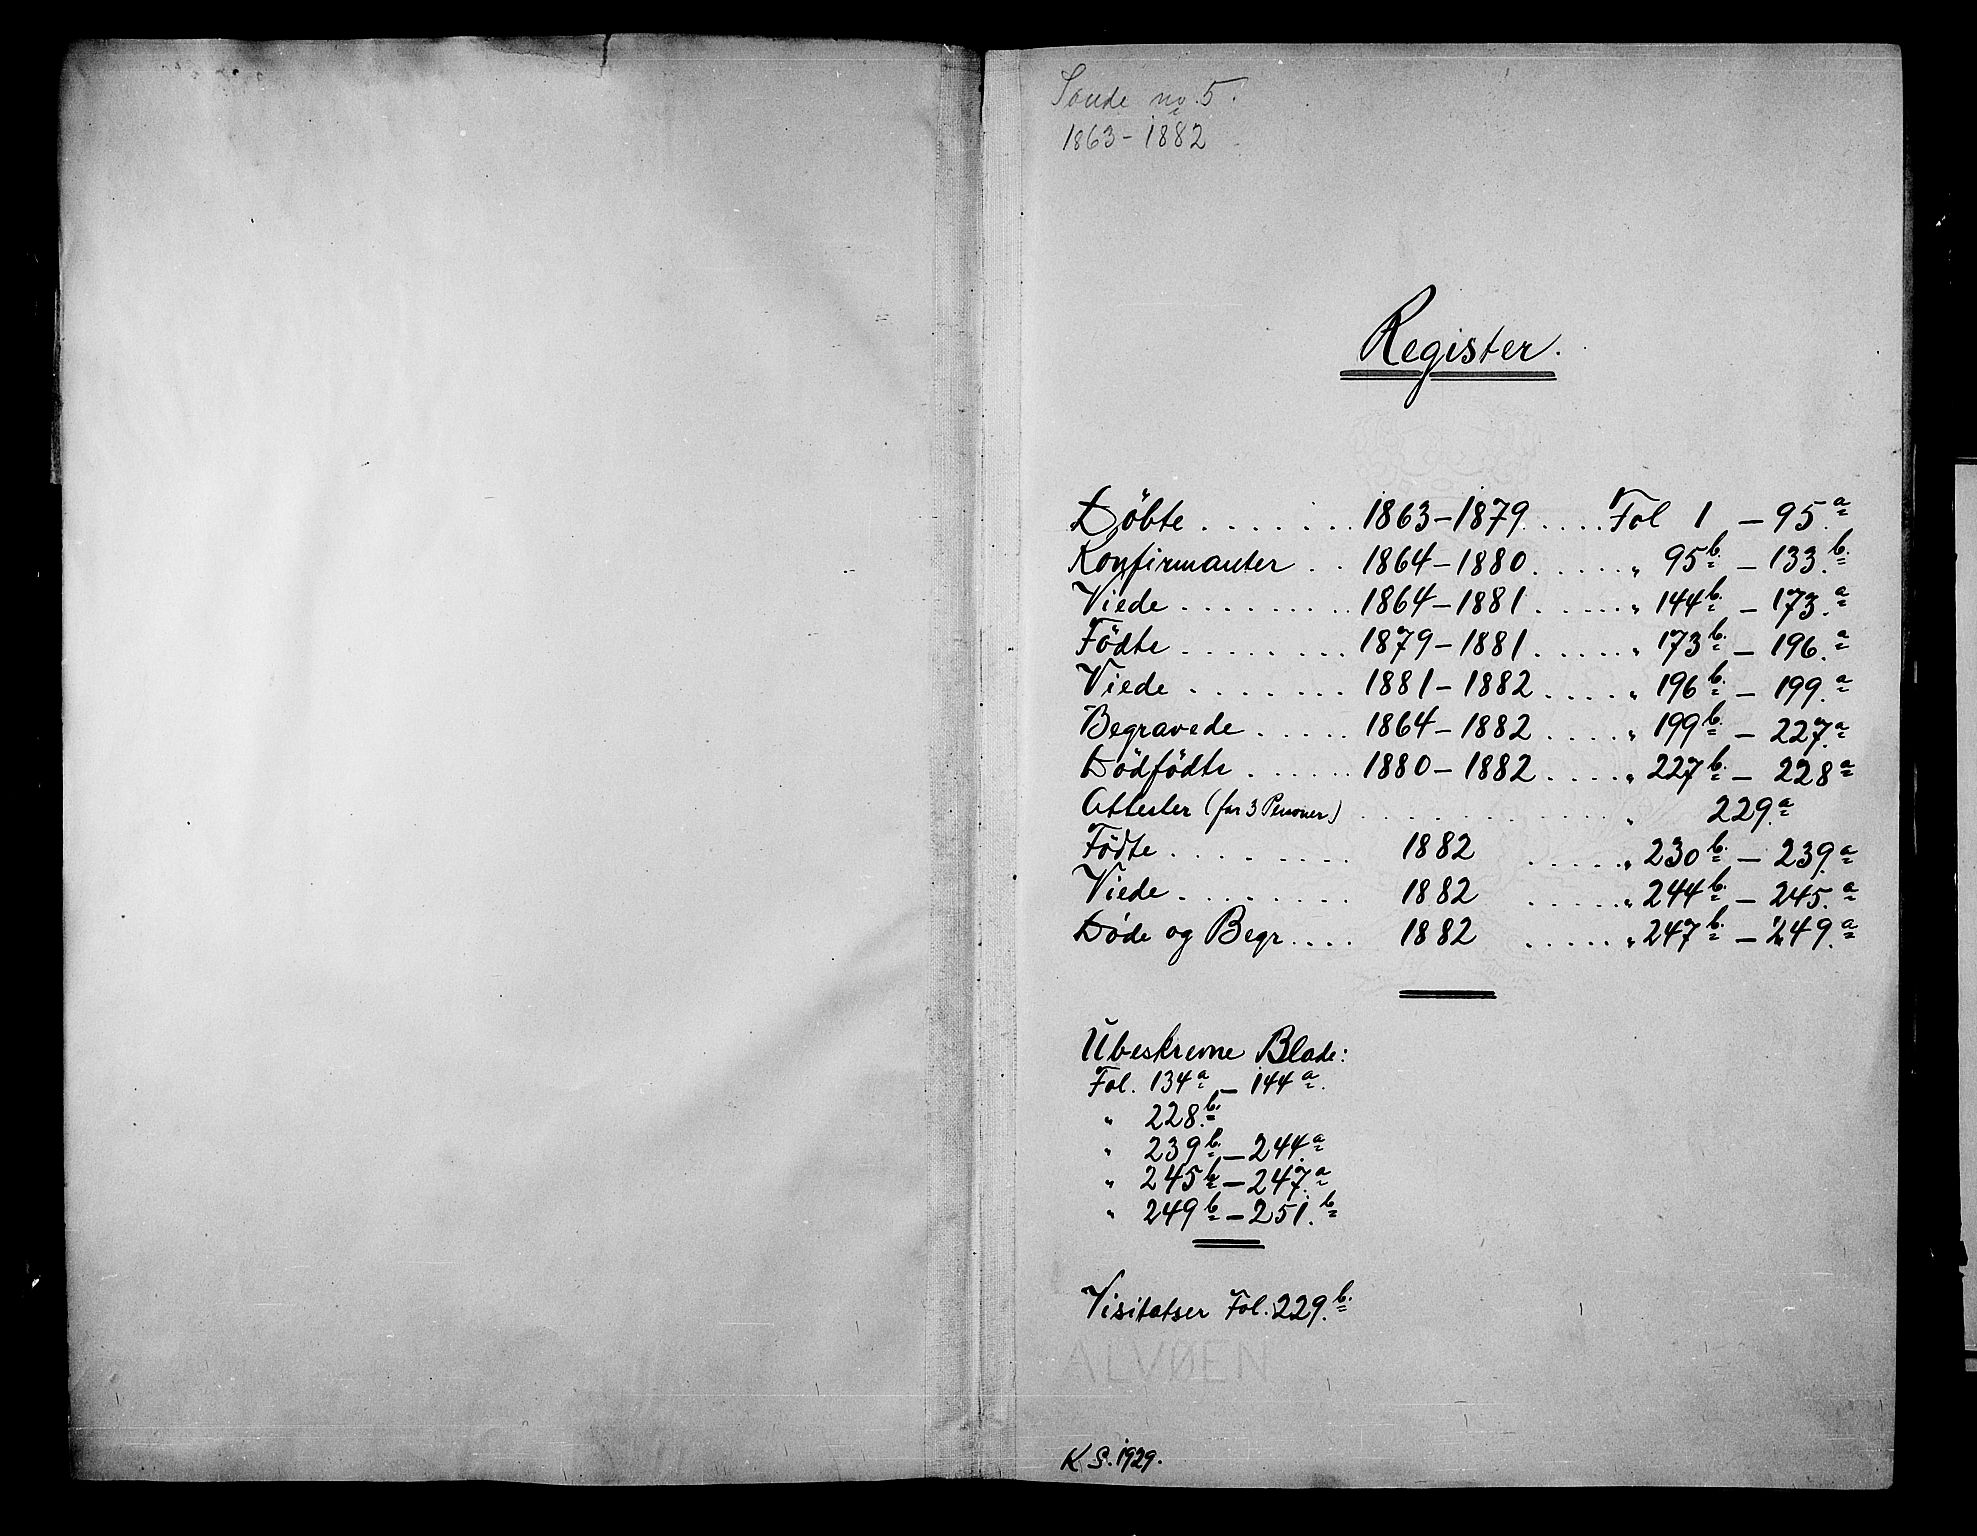 Sande no. 5.
1863-1882
Register.
Döbte . . . . . . . 1863-1879 . . . . Fol 1 - 95.a
Konfirmanter . . 1864-1880 . . . . . " 95b. - 133.b.
Viede . . . . . . . . . 1864-1881 . . . . . " 144b. - 173.a
Födte . . . . . . . . 1879-1881 . . . . . " 173b. - 196.a
Viede . . . . . . . . 1881-1882 . . . . " 196b. - 199.a
Begravede . . . . . 1864-1882 . . . . . " 199b. - 227.a
Dödfödte . . . . . . 1880-1882 . . . . " 227b. - 228a
Attester (for 3 Personer) . . . . . . . . . . . . " 229.a
Födte . . . . . . . . 1882 . . . . . " 230b. - 239.a
Viede . . . . . . . . 1882 . . . . . " 244b. - 245.a
Døde og Begr. . . . 1882 . . . . . " 247b. - 249.a
Ubeskrevne Blade:
Fol. 134a - 144a.
" 228.b.
" 239b. - 244.a
" 245b - 247.a
" 249b. - 251.b
Visitatser Fol. 229.b.
ALVØEN
K S. 1929.